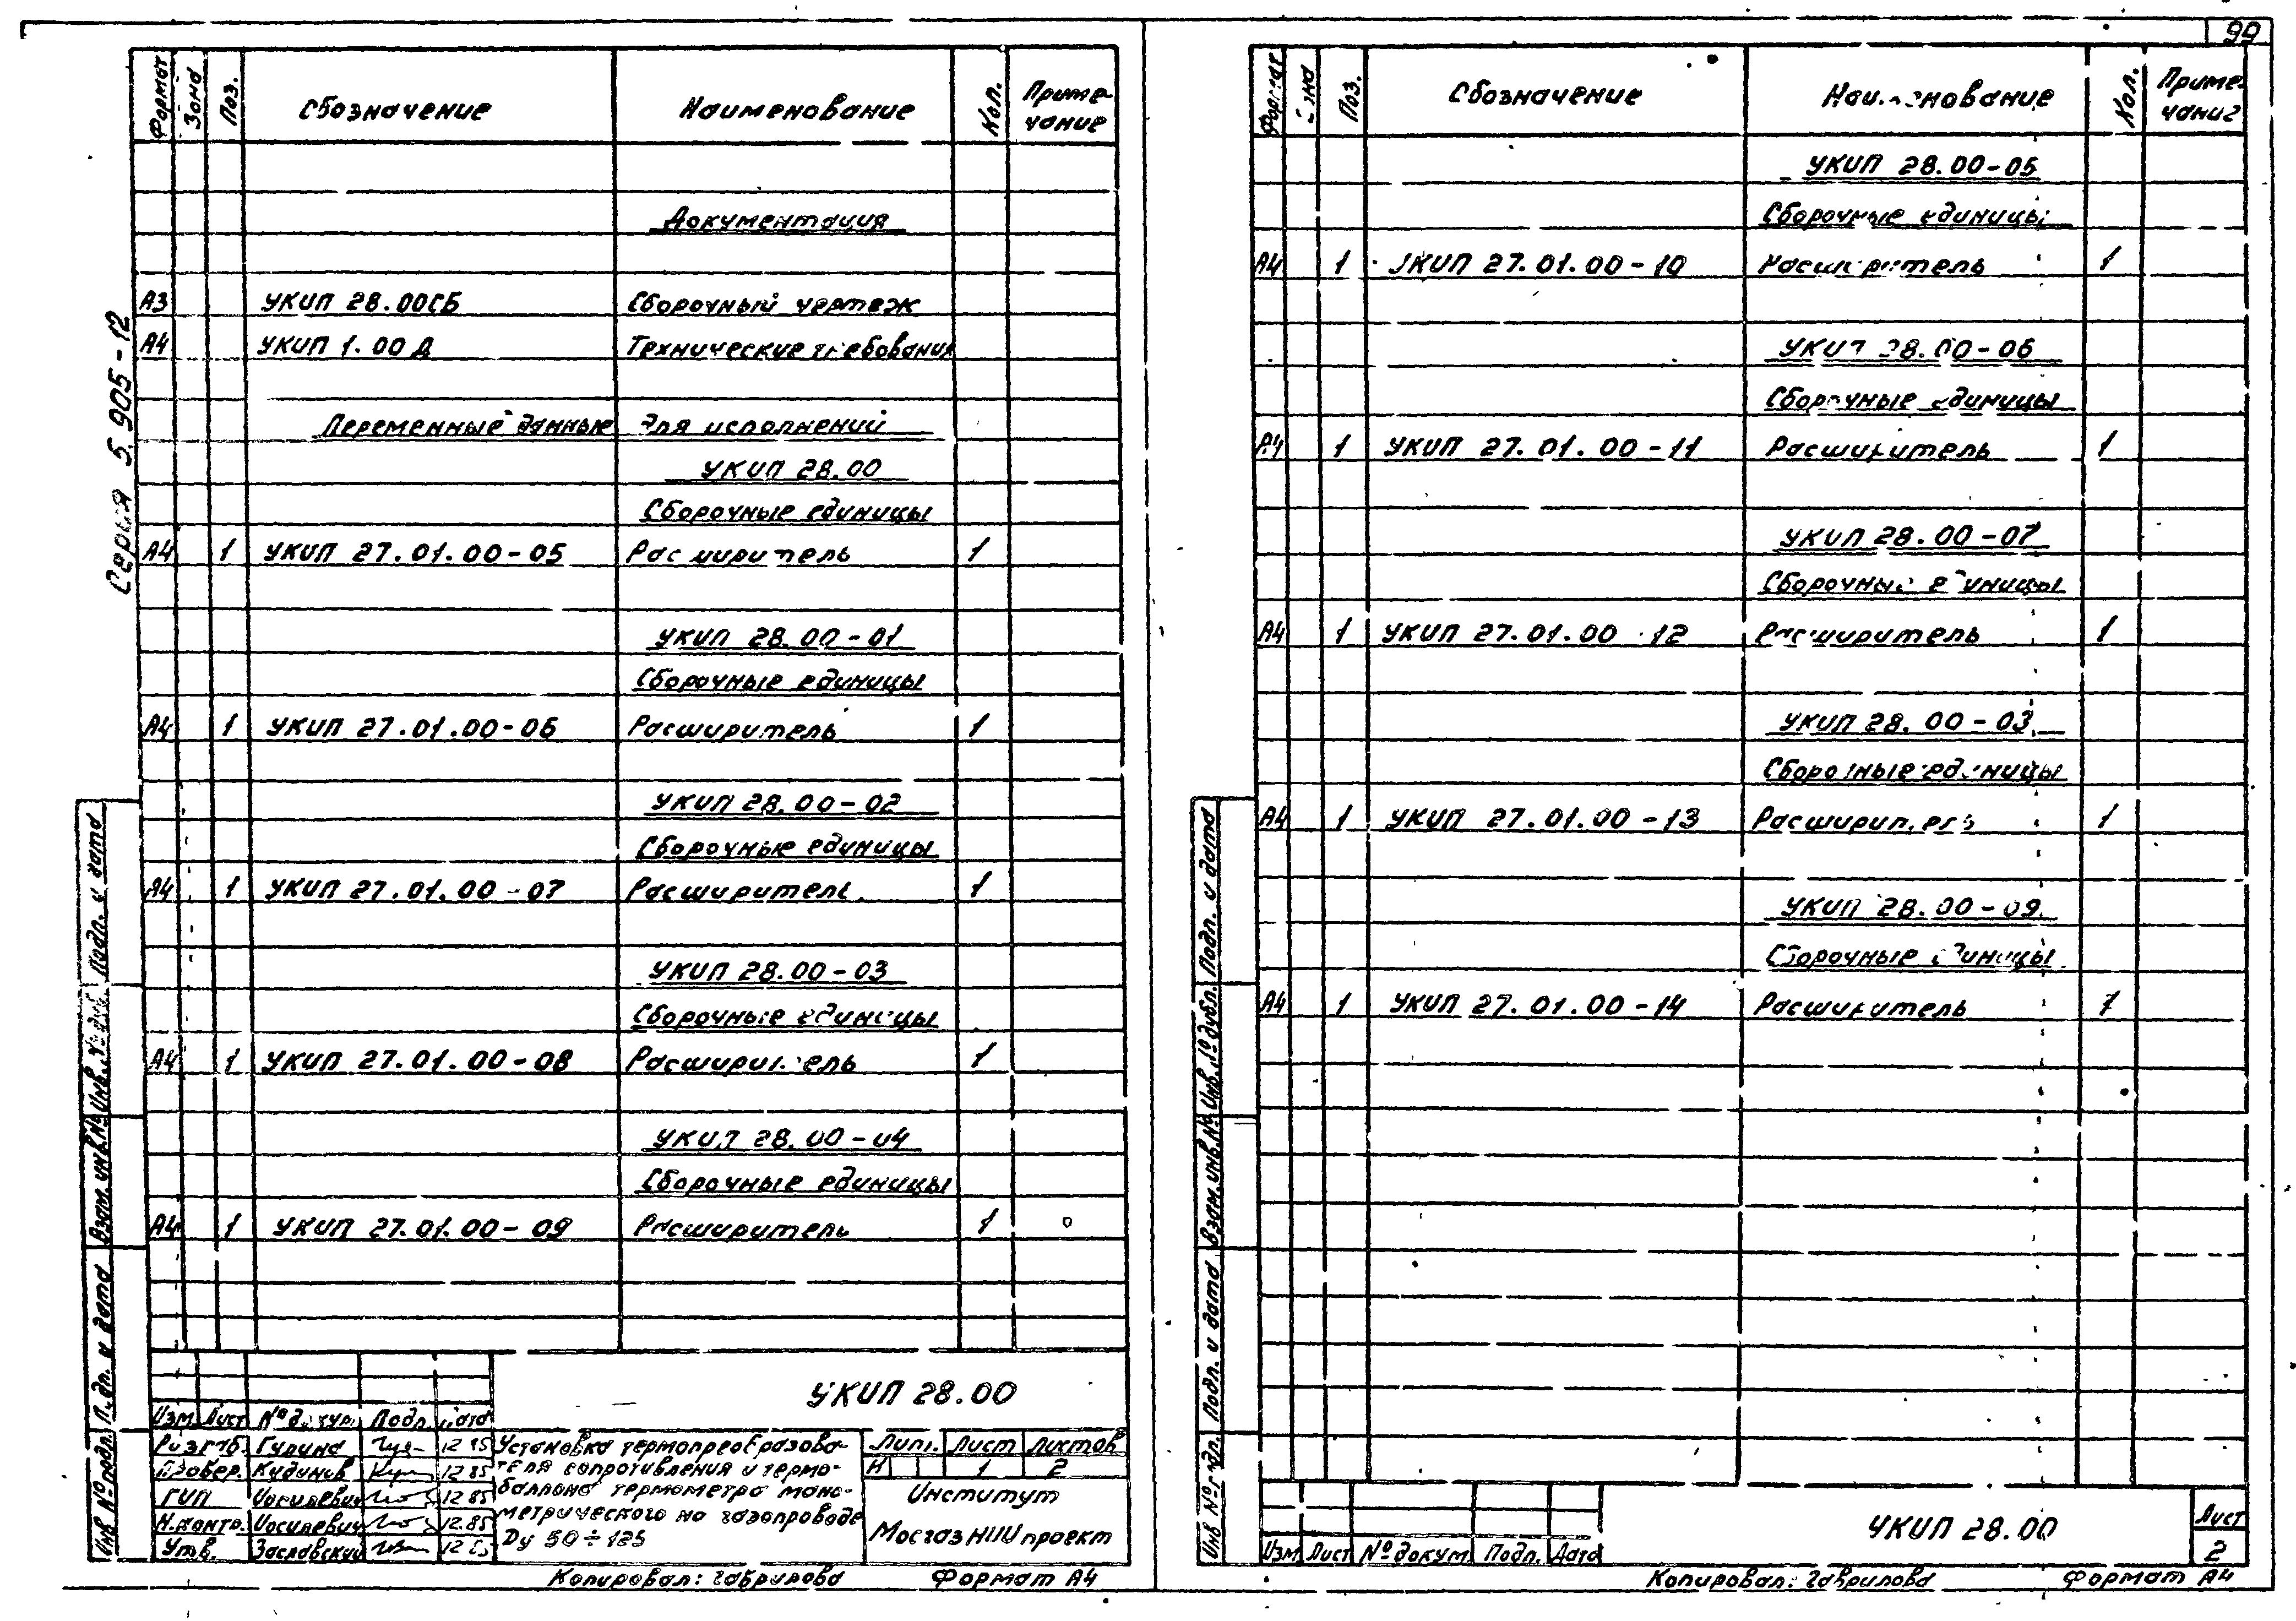 99
Серия 5.905-12
Формат Зона Поз. Обозначение Наименование Кол. Приме-
чание
Документация
А3 УКИП 28.00СБ Сборочный чертеж
А4 УКИП 1.00 Д Технические требования
Переменные данные для исполнений
УКИП 28.00
Сборочные единицы
А4 1 УКИП 27.01.00-05 Расширитель 1
УКИП 28.00-01
Сборочные единицы
А4 1 УКИП 27.01.00-06 Расширитель 1
УКИП 28.00-02
Сборочные единицы
А4 1 УКИП 27.01.00-07 Расширитель 1
УКИП 28.00-03
Сборочные единицы
А4 1 УКИП 27.01.00-08 Расширитель 1
УКИП 28.00-04
Сборочные единицы
А4 1 УКИП 27.01.00-09 Расширитель 1
Инв № подл. Подп. и дата Взам. инв. № Инв. № дубл. Подп. и дата
УКИП 28.00
Изм Лист № докум. Подп. Дата
Разраб. Гурина 12.85
Провер. Кудинов 12.85
ГИП Иосилевич 12.85
Н.контр. Иосилевич 12.85
Утв. Заславский 12.85
Установка термопреобразова-
теля сопротивления и термо-
баллона термометра мано-
метрического на газопроводе
Ду 50÷125
Лит. Лист Листов
И 1 2
Институт
МосгазНИИпроект
Копировал: Гаврилова Формат А4
Формат Зона Поз. Обозначение Наименование Кол. Приме-
чание
УКИП 28.00-05
Сборочные единицы
А4 1 УКИП 27.01.00-10 Расширитель 1
УКИП 28.00-06
Сборочные единицы
А4 1 УКИП 27.01.00-11 Расширитель 1
УКИП 28.00-07
Сборочные единицы
А4 1 УКИП 27.01.00-12 Расширитель 1
УКИП 28.00-03
Сборочные единицы
А4 1 УКИП 27.01.00-13 Расширитель 1
УКИП 28.00-09
Сборочные единицы
А4 1 УКИП 27.01.00-14 Расширитель 1
Инв № подл. Подп. и дата Взам. инв. № Инв. № дубл. Подп. и дата
Изм Лист № докум. Подп. Дата
УКИП 28.00
Лист
2
Копировал: Гаврилова Формат А4